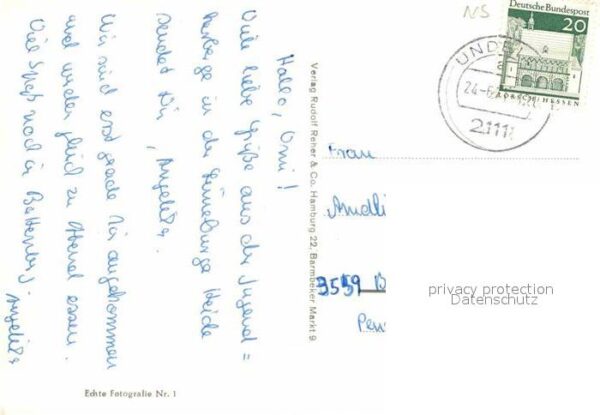 Hallo, Omi!
Viele liebe Grüße aus der Jugend=
herberge in der Lüneburger Heide
sendet Dir, Angelika.
Wir sind erst gerade hier angekommen
und wieder gleich zu Abend essen.
Viel Spaß noch in
Angelika
Echte Fotografie Nr. 1
Verlag Rudolf Reher & Co. Hamburg 22, Barmbeker Markt 9
NS
Deutsche Bundespost
20
LORSCH/HESSEN
UNDE
24.-6.
2111
Frau
3559
privacy protection
Datenschutz